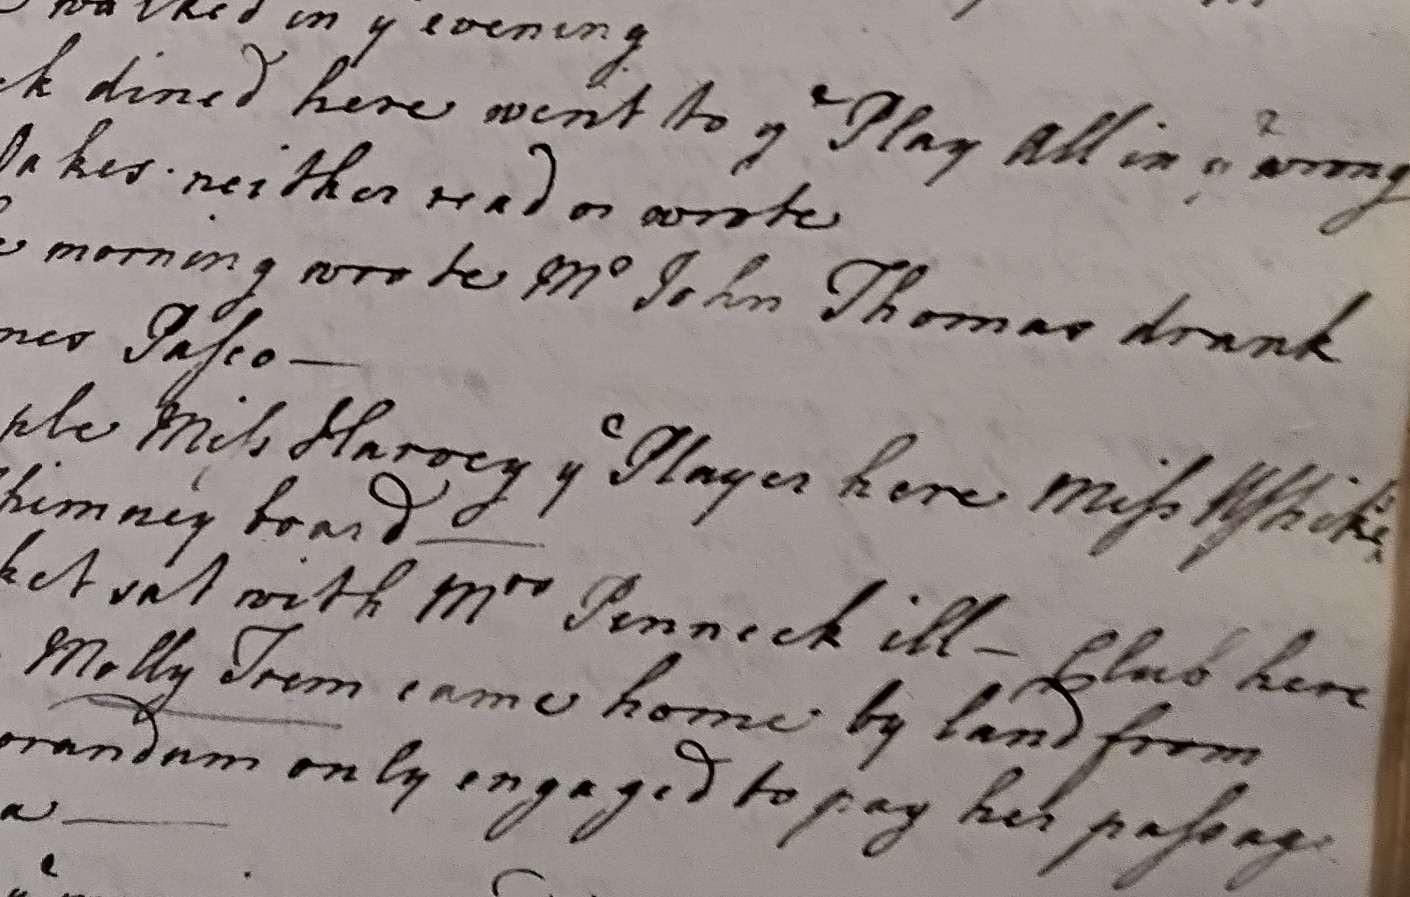 walked in y evening
ck dined here went to yᵉ Play All in yᵉ wrong
Jakes neither read or wrote
e morning wrote Mʳ John Thomas drank
mes Pasco —
ple Miss Harvey yᵉ Player here Miss White
himney board —
ket sat with Mʳˢ Penneck ill — Club here
Molly Trem came home by land from
orandum only engaged to pay her passag
a —